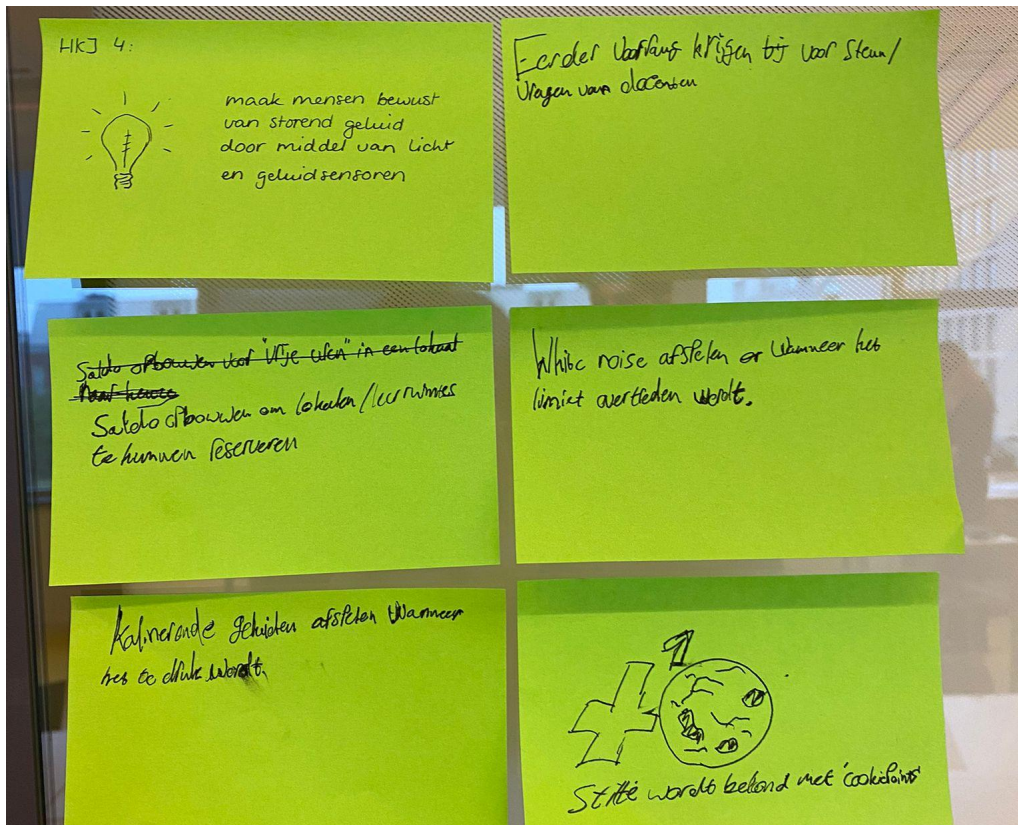 HKJ 4:
maak mensen bewust
van storend geluid
door middel van licht
en geluidsensoren
Eerder voorrang krijgen bij voor steun/
vragen van docenten
Saldo opbouwen voor "vrije uren" in een lokaal
naar keuze
Saldo opbouwen om lokalen/leerruimtes
te kunnen reserveren
White noise afspelen er wanneer het
limiet overtreden wordt.
Kalmerende geluiden afspelen wanneer
het te druk wordt.
+1
Stilte wordt beloond met 'cookiepoints'